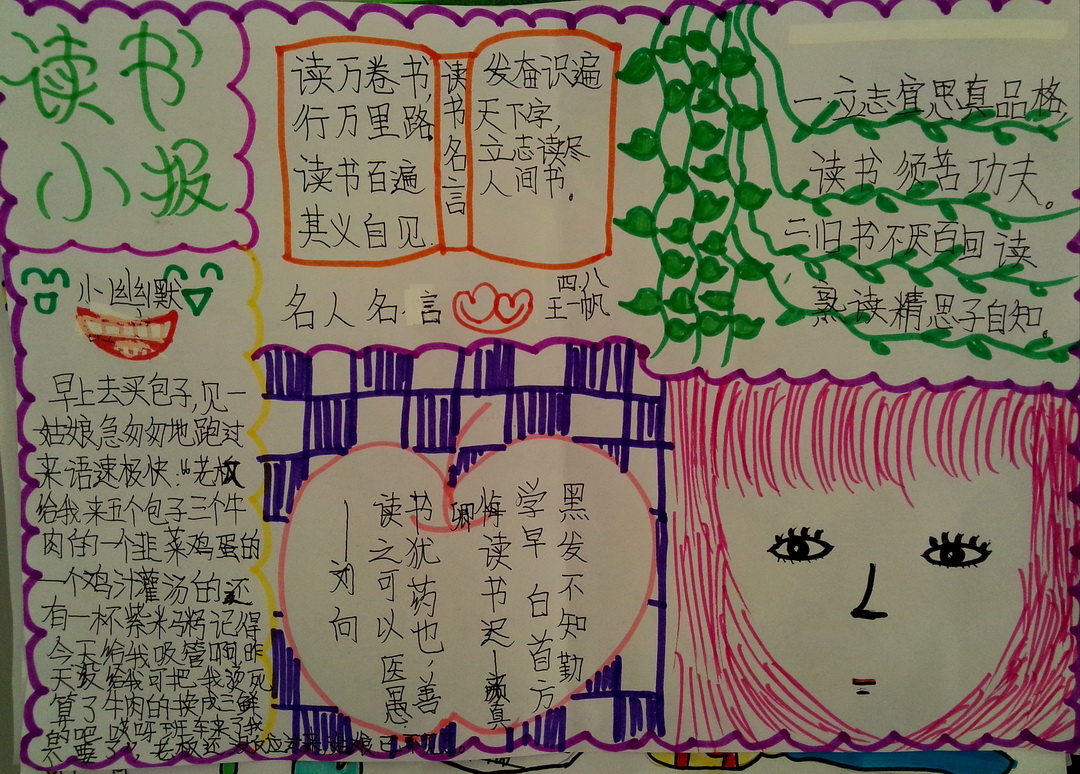 读书
小报
读万卷书,
行万里路
读书百遍
其义自见.
读书名言
发奋识遍
天下字,
立志读尽
人间书。
名人名言
四.八
王一帆
一立志宜思真品格
读书须苦功夫。
三旧书不厌百回读
熟读精思子自知.
小幽默
早上去买包子,见一
姑娘急匆匆地跑过
来语速极快:“老板
给我来五个包子三个牛
肉的一个韭菜鸡蛋的
一个鸡汁灌汤的还
有一杯紫米粥记得
今天给我吸管啊昨
天没给我可把我烫死
算了牛肉的换成三鲜
的吧 哎呀班车来了我
不要了”,老板还
黑发不知勤
学早 白首方
悔读书迟—颜真
卿
书犹药也,善
读之可以医愚
——刘向